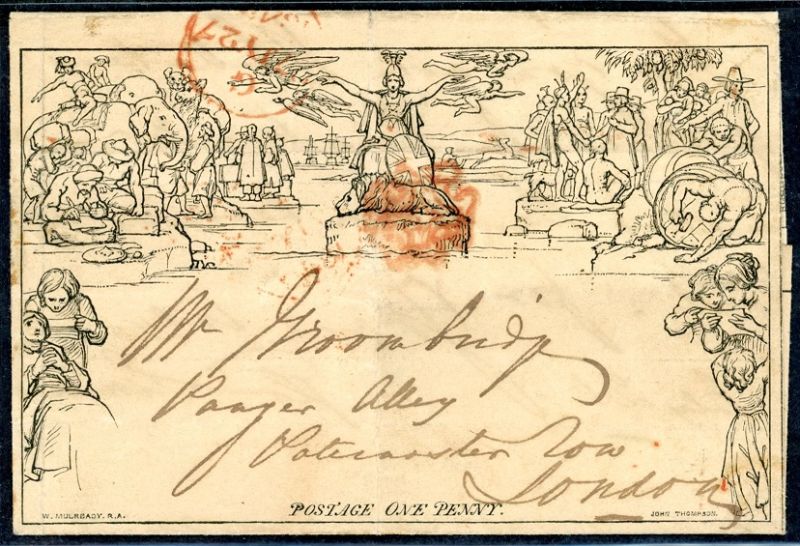 27
Mr Groombridge
Panyer Alley
Paternoster Row
London
POSTAGE ONE PENNY.
W. MULREADY. R.A.
JOHN THOMPSON.